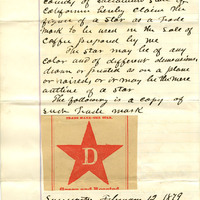 County of Sacramento State of
California hereby claim the
figure of a Star as a Trade
mark to be used in the Sale of
Coffee prepared by me
The Star may be of any
color and of different dimensions,
drawn or printed as on a plane
or raised or it may be the mere
outline of a star
The following is a copy of
such Trade mark
TRADE MARK
D
Sacramento February 12 1879